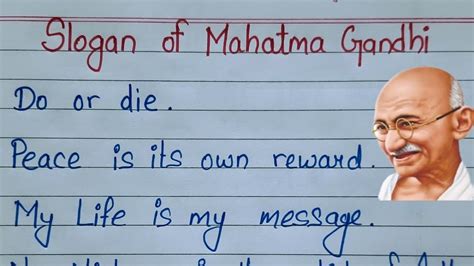 Slogan of Mahatma Gandhi
Do or die.
Peace is its own reward.
My Life is my message.